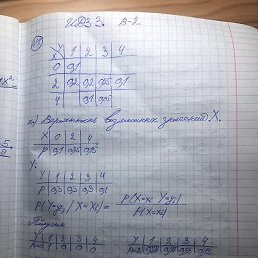 ИДЗ 3. В-2.
Y 1 2 3 4
X
0 0,1
2 0,2 0,2 0,25 0,1
4 0,1 0,05
а) Вероятность возможных значений X.
X 0 2 4
P 0,1 0,75 0,15
Y:
Y 1 2 3 4
P 0,3 0,3 0,3 0,1
P(Y=yj / X=xi) = P(X=xi Y=yj) / P(X=xi)
Y 1 2 3 4 Y 1 2 3 4
X=0 1 0 0 0